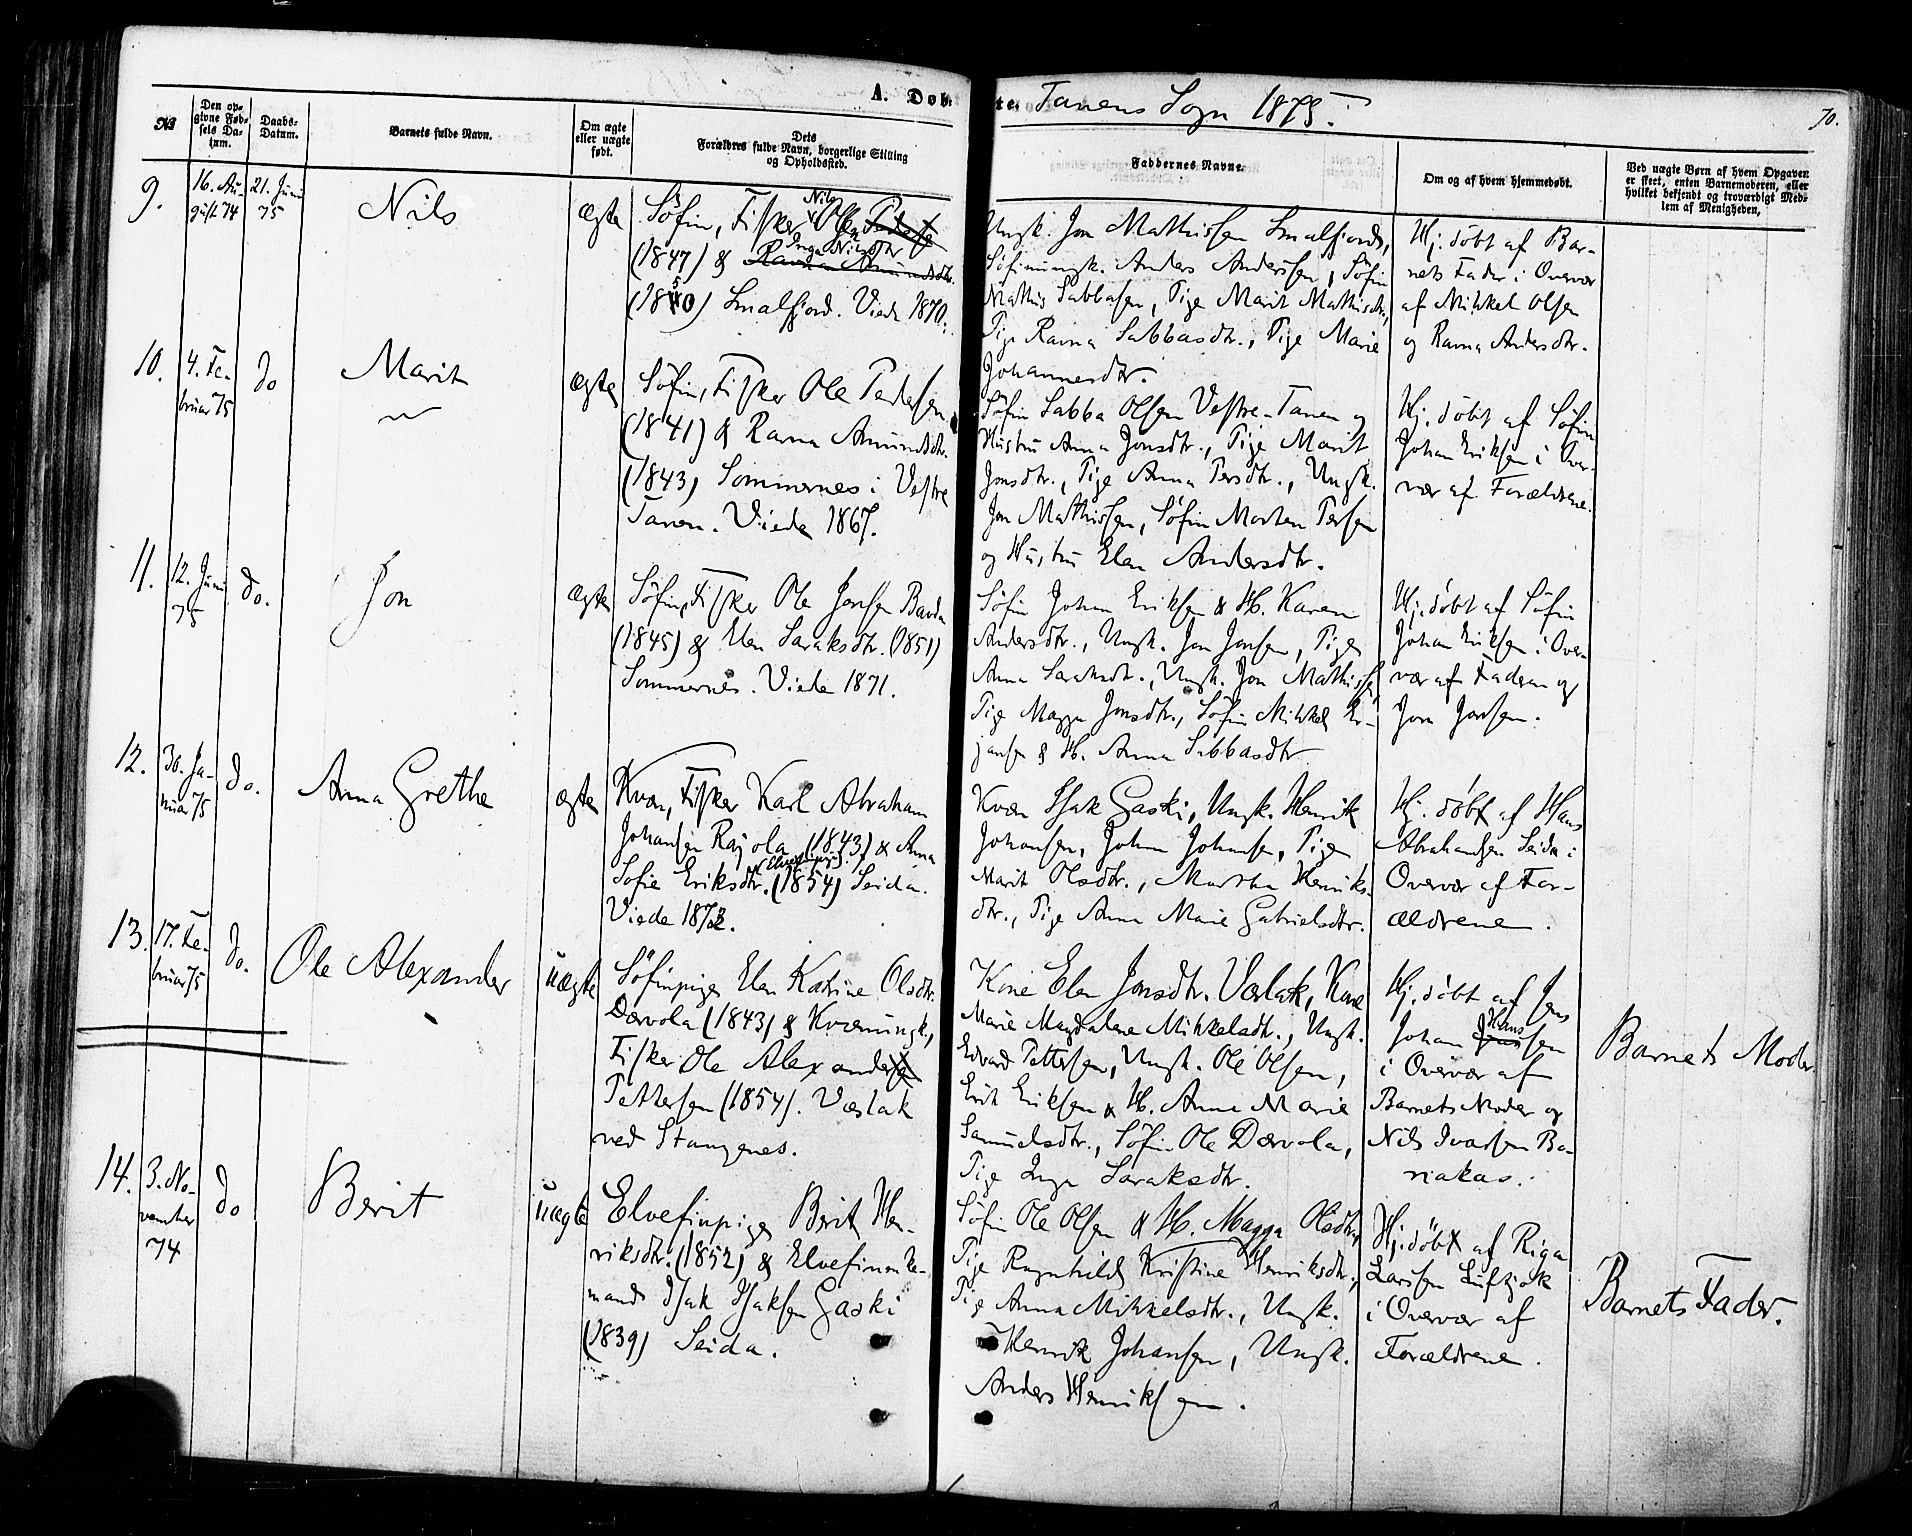 A. Døbte. Tanens Sogn 1875.
70.
No
Den opgivne Fødsels Datum.
Daabs-Datum.
Barnets fulde Navn.
Om ægte eller uægte født.
Dets Forældres fulde Navn, borgerlige Stilling og Opholdssted.
Faddernes Navne.
Om og af hvem hjemmedøbt.
Ved uægte Børn af hvem Opgaven er skeet, enten Barnemoderen, eller hvilket bekjendt og troværdigt Medlem af Menigheden,
9.
16. Au-
gust 74
21. Juni
75
Nils
ægte
Søfin, Fisker Nils Olsen
(1847) & Inga Nilsdtr
(1850) Smalfjord. Viede 1870.
Ungk. Jon Mathissen Smalfjord,
Søfinungk. Anders Andersen, Søfin
Mathis Sabbasen, Pige Marit Mathisdtr.,
Pige Ravna Sabbasdtr., Pige Marie
Johannesdtr.
Hj. døbt af Bar-
nets Fader i Overvær
af Mikkel Olsen
og Ravna Andersdtr.
10.
4. Fe-
bruar 75
do
Marit
ægte
Søfin, Fisker Ole Pedersen
(1841) & Ravna Amundsdtr.
(1843) Sommernes i Vestre
Tanen. Viede 1867.
Søfin Sabba Olsen Vestre-Tanen og
Hustru Anna Jonsdtr., Pige Marit
Jonsdtr., Pige Anna Persdtr., Ungk.
Jon Mathissen, Søfin Morten Persen
og Hustru Elen Andersdtr.
Hj. døbt af Søfin
Johan Eriksen i Over-
vær af Forældrene.
11.
12. Juni
75
do.
Jon
ægte
Søfin, Fisker Ole Jonsen Banda
(1845) & Elen Saraksdtr. (1851)
Sommernes. Viede 1871.
Søfin Johan Eriksen & H. Karen
Andersdtr., Ungk. Jon Jonsen, Pige
Anna Saraksdtr., Ungk. Jon Mathissen,
Pige Magga Jonsdtr., Søfin Mikkel Er-
jansen & H. Anna Sabbasdtr
Hj. døbt af Søfin
Johan Eriksen i Over-
vær af Faderen og
Jon Jonsen.
12.
30. Ja-
nuar 75
do.
Anna Grethe
ægte
Kvæn, Fisker Karl Abraham
Johansen Rajola (1843) & Anna
Sofie Eriksdtr. (Elvefinpige) (1854) Seida.
Viede 1873.
Kvæn Isak Gaski, Ungk. Henrik
Johansen, Johan Johansen, Pige
Marit Olsdtr., Martha Henriks-
dtr., Pige Anna Marie Gabrielsdtr.
Hj. døbt af Hans
Abrahamsen Seida i
Overvær af For-
ældrene.
13.
17. Fe-
bruar 75
do.
Ole Alexander
uægte
Søfinpige Elen Katrine Olsdtr.
Dærvola (1843) & Kvænungk.,
Fisker Ole Alexander
Pettersen (1854). Væslak
ved Stangenes.
Kone Elen Jonsdtr. Væslak, Kone
Marie Magdalene Mikkelsdtr., Ungk.
Edvard Pettersen, Ungk. Ole Olsen,
Erik Eriksen & H. Anna Marie
Samuelsdtr., Søfin Ole Dærvola,
Pige Inga Saraksdtr.
Hj. døbt af Jens
Johan Hansen
i Overvær af
Barnets Moder og
Nils Ivarsen Ba-
riakas.
Barnets Moder
14.
3. No-
vember
74
do
Berit
uægte
Elvefinpige Berit Hen-
riksdtr. (1852) & Elvefin enke-
mand Isak Isaksen Gaski
(1839) Seida.
Søfin Ole Olsen & H. Magga Olsdtr.,
Pige Ragnhild Kristine Henriksdtr.,
Pige Anna Mikkelsdtr., Ungk.
Henrik Johansen, Ungk.
Anders Henriksen.
Hj. døbt af Riga
Larsen Luftjok
i Overvær af
Forældrene.
Barnets Fader.